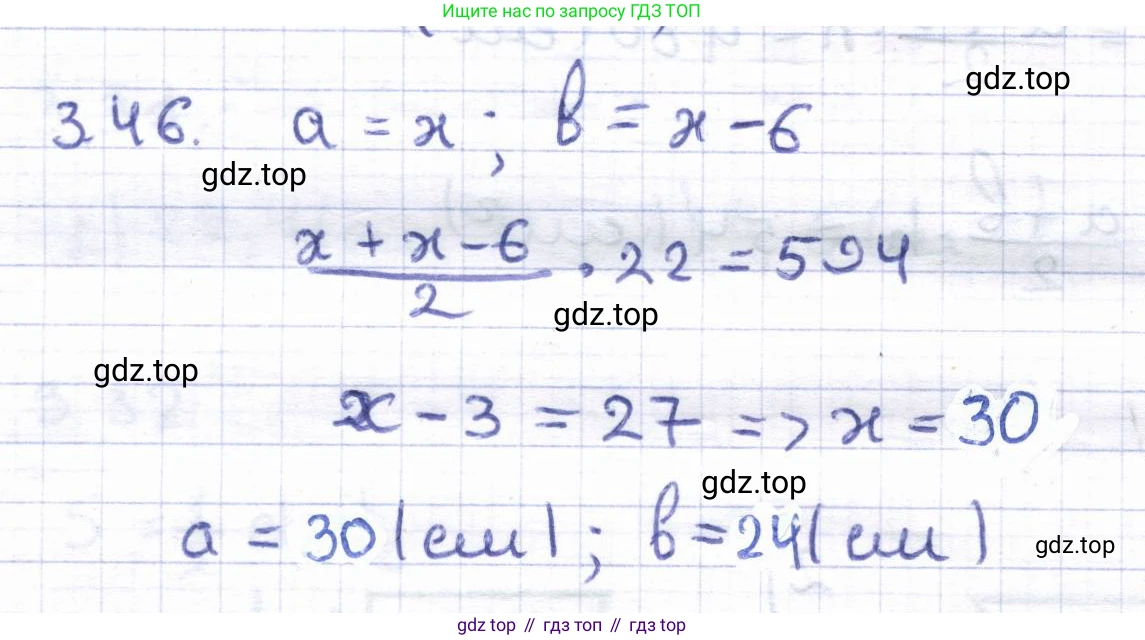 Ищите нас по запросу ГДЗ ТОП
gdz.top
346. a = x; b = x - 6
gdz.top
(x + x - 6)/2 · 22 = 594
gdz.top
gdz.top
x - 3 = 27 => x = 30
gdz.top
a = 30 (см); b = 24 (см)
gdz.top
gdz top // гдз топ // гdz top